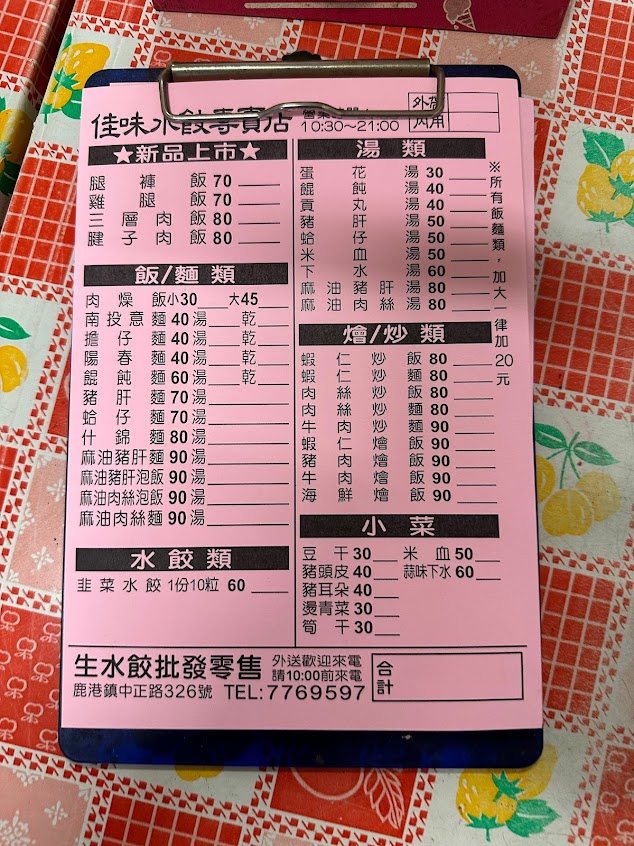 佳味水餃專賣店
10:30～21:00
外帶
內用
★新品上市★
腿褲飯 70
雞腿飯 70
三層肉飯 80
腱子肉飯 80
飯/麵類
肉燥飯 小30 大45
南投意麵 40 湯 乾
擔仔麵 40 湯 乾
陽春麵 40 湯 乾
餛飩麵 60 湯 乾
豬肝麵 70 湯
蛤仔麵 70 湯
什錦麵 80 湯
麻油豬肝麵 90 湯
麻油豬肝泡飯 90 湯
麻油肉絲泡飯 90 湯
麻油肉絲麵 90 湯
水餃類
韭菜水餃 1份10粒 60
湯類
蛋花湯 30
餛飩湯 40
貢丸湯 40
豬肝湯 50
蛤仔湯 50
米血湯 50
下水湯 60
麻油豬肝湯 80
麻油肉絲湯 80
※所有飯麵類，加大一律加20元
燴/炒類
蝦仁炒飯 80
蝦仁炒麵 80
肉絲炒飯 80
肉絲炒麵 80
牛肉炒麵 90
蝦仁燴飯 90
豬肉燴飯 90
牛肉燴飯 90
海鮮燴飯 90
小菜
豆干 30 米血 50
豬頭皮 40 蒜味下水 60
豬耳朵 40
燙青菜 30
筍干 30
生水餃批發零售
外送歡迎來電
請10:00前來電
鹿港鎮中正路326號 TEL:7769597
合計